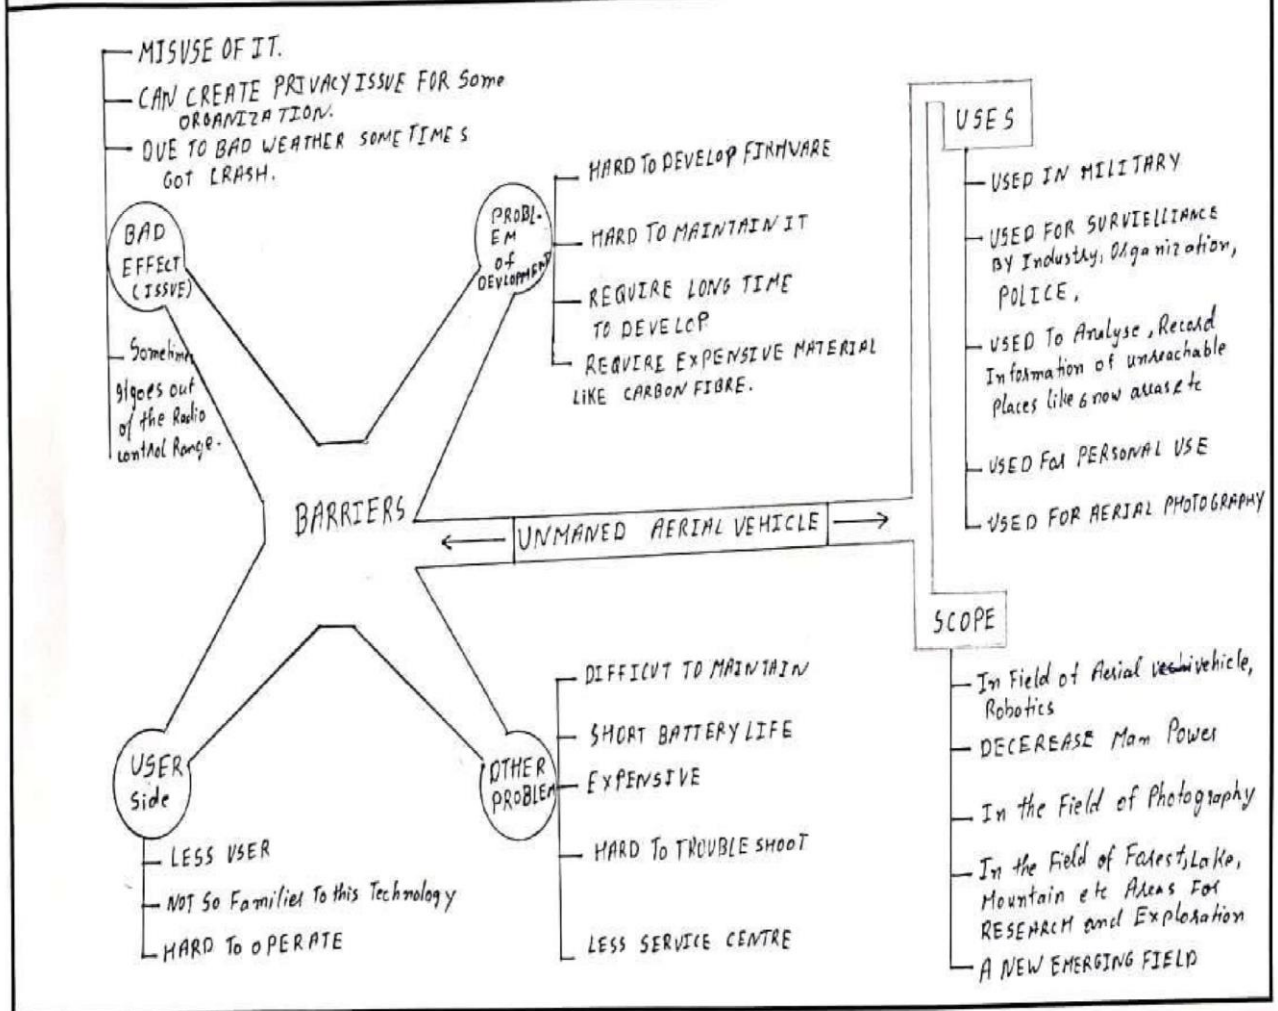 MISUSE OF IT.
CAN CREATE PRIVACY ISSUE FOR Some
ORGANIZATION.
DUE TO BAD WEATHER SOMETIMES
GOT CRASH.
BAD
EFFECT
(ISSUE)
Sometimes
goes out
of the Radio
control Range.
PROBL-
EM
of
DEVLOPMENT
HARD TO DEVELOP FIRMWARE
HARD TO MAINTAIN IT
REQUIRE LONG TIME
TO DEVELOP
REQUIRE EXPENSIVE MATERIAL
LIKE CARBON FIBRE.
BARRIERS
UNMANED AERIAL VEHICLE
USER
Side
LESS USER
NOT So Familier To this Technology
HARD To OPERATE
OTHER
PROBLEM
DIFFICUT TO MAINTAIN
SHORT BATTERY LIFE
EXPENSIVE
HARD To TROUBLE SHOOT
LESS SERVICE CENTRE
USES
USED IN MILITARY
USED FOR SURVIELLIANCE
BY Industry, Organization,
POLICE.
USED To Analyse, Record
Information of unreachable
Places like snow areas etc
USED For PERSONAL USE
USED FOR AERIAL PHOTOGRAPHY
SCOPE
In Field of Aerial vehicle,
Robotics
DECEREASE Man Power
In the Field of Photography
In the Field of Forest, Lake,
Mountain etc Areas For
RESEARCH and Exploration
A NEW EMERGING FIELD